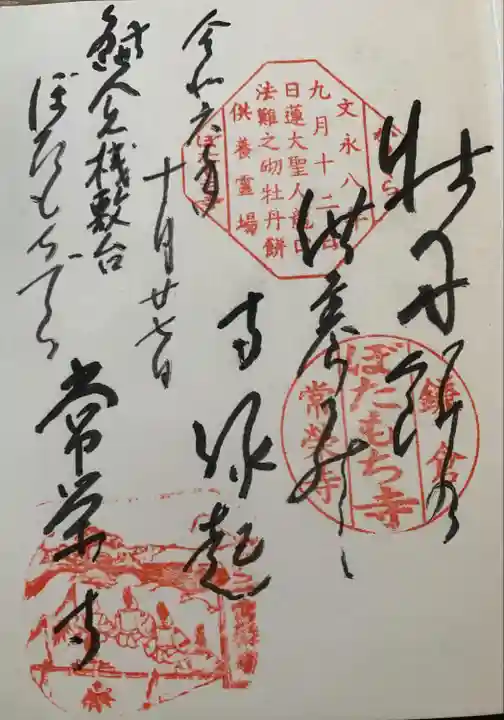 牡丹餅の
供養
寺縁起
令和六年
十月廿七日
桟敷台
ぼたもちでら
常栄寺
文永八年
九月十二日
日蓮大聖人龍口
法難之砌牡丹餅
供養霊場
鎌倉
ぼたもち寺
常榮寺